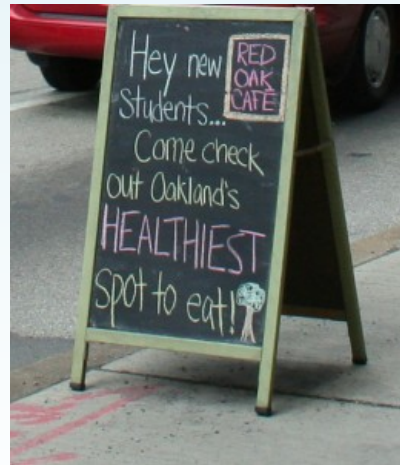 Hey new
Students...
RED
OAK
CAFÉ
Come check
out Oakland's
HEALTHIEST
spot to eat!